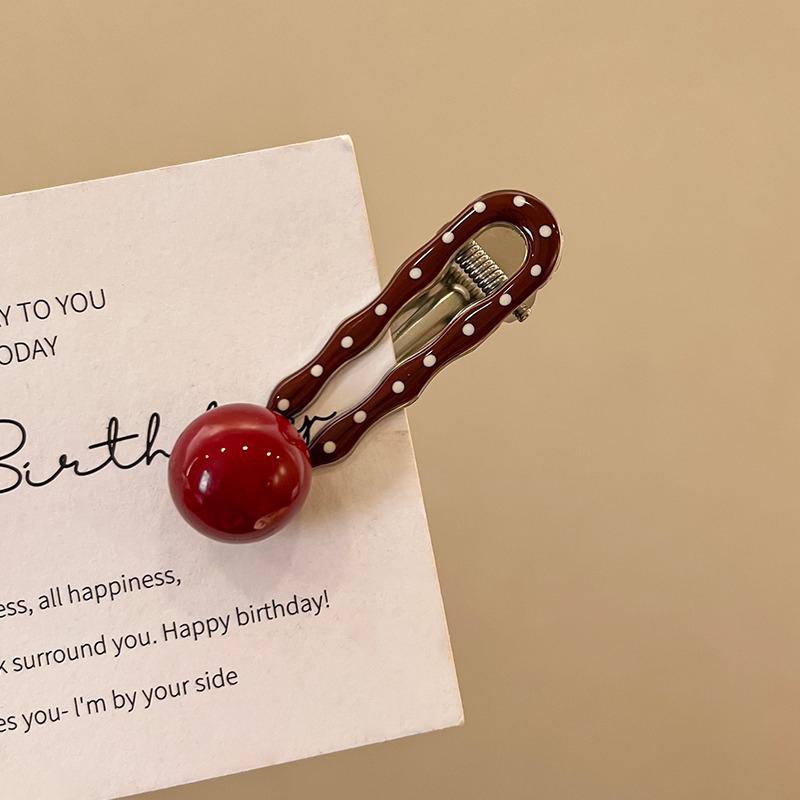 Y TO YOU
ODAY
Birth
ess, all happiness,
k surround you. Happy birthday!
es you- I'm by your side